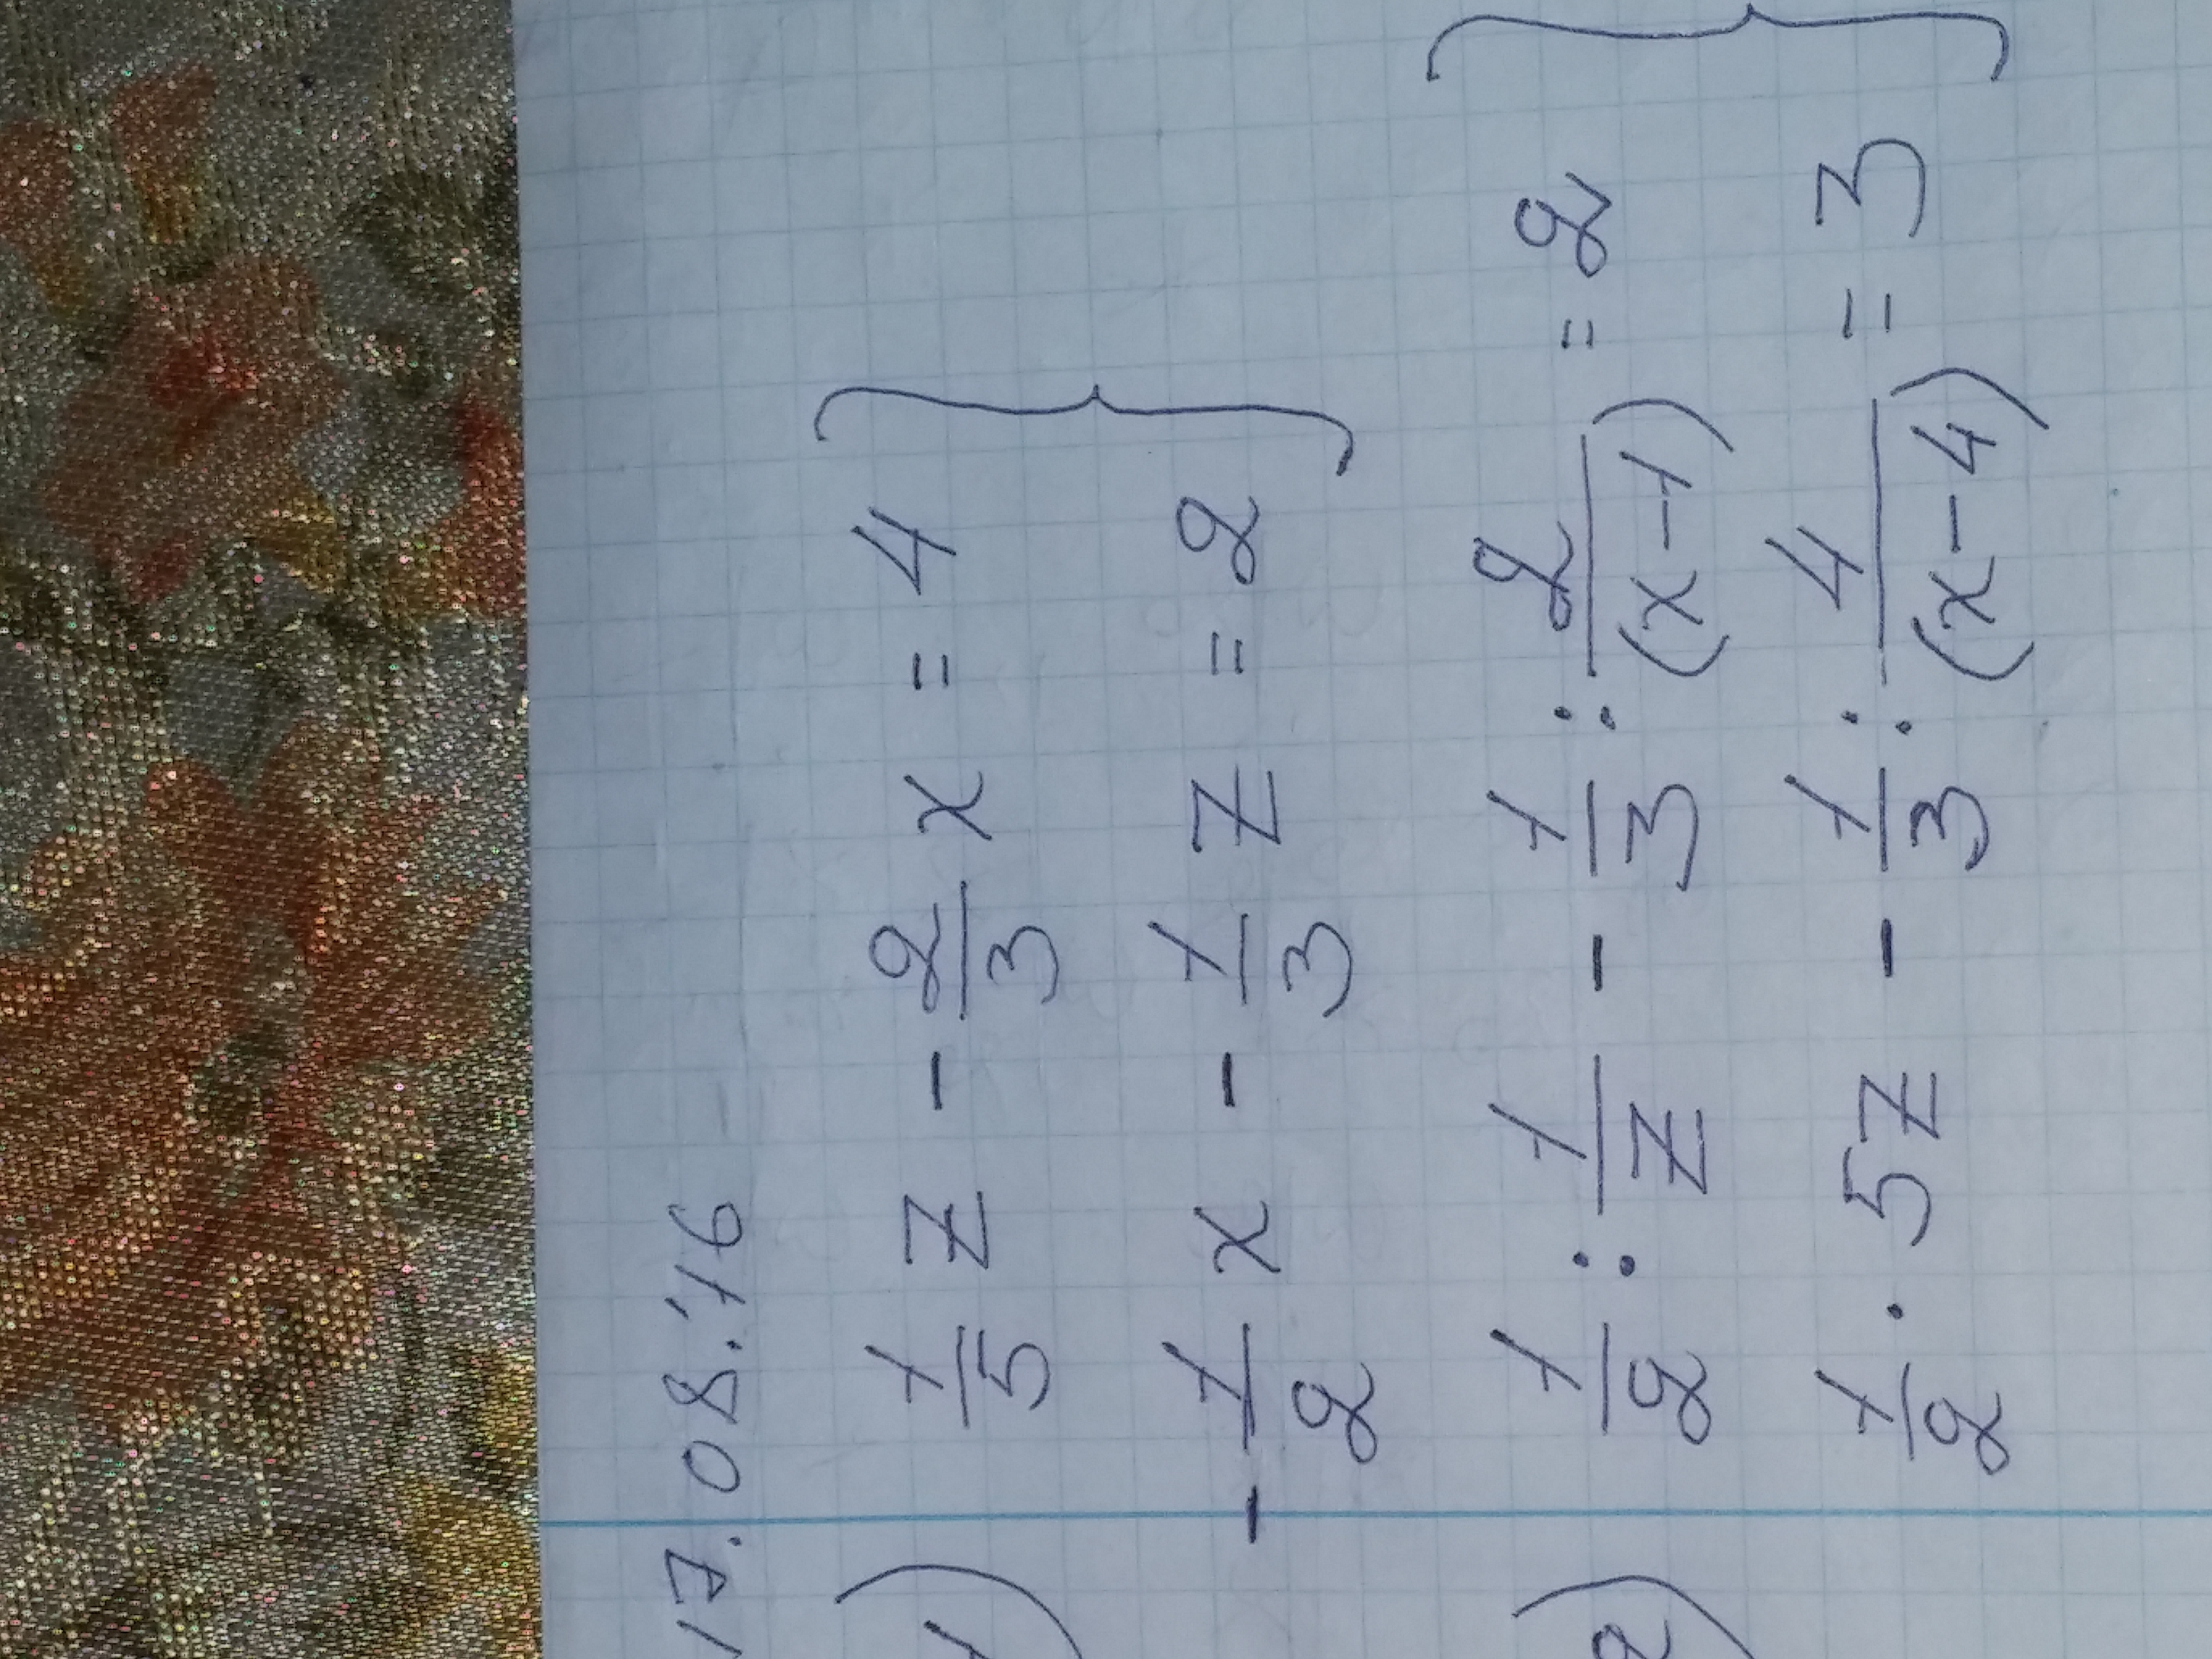 17.08.'16
1) 1/5 z - 2/3 x = 4 }
- 1/2 x - 1/3 z = 2
2) 1/2 : 1/z - 1/3 : 2/(x-1) = 2 }
1/2 · 5z - 1/3 : 4/(x-4) = 3